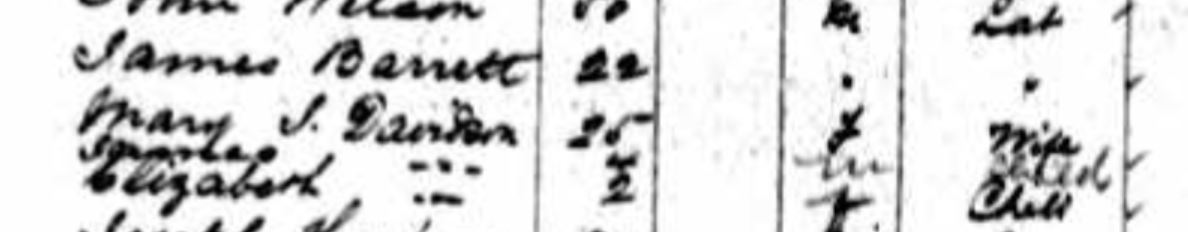 Wilson m Lab
James Barrett 22 " "
Mary S. Davidson 25 f Wife
" m
Elizabeth " 2 f Child